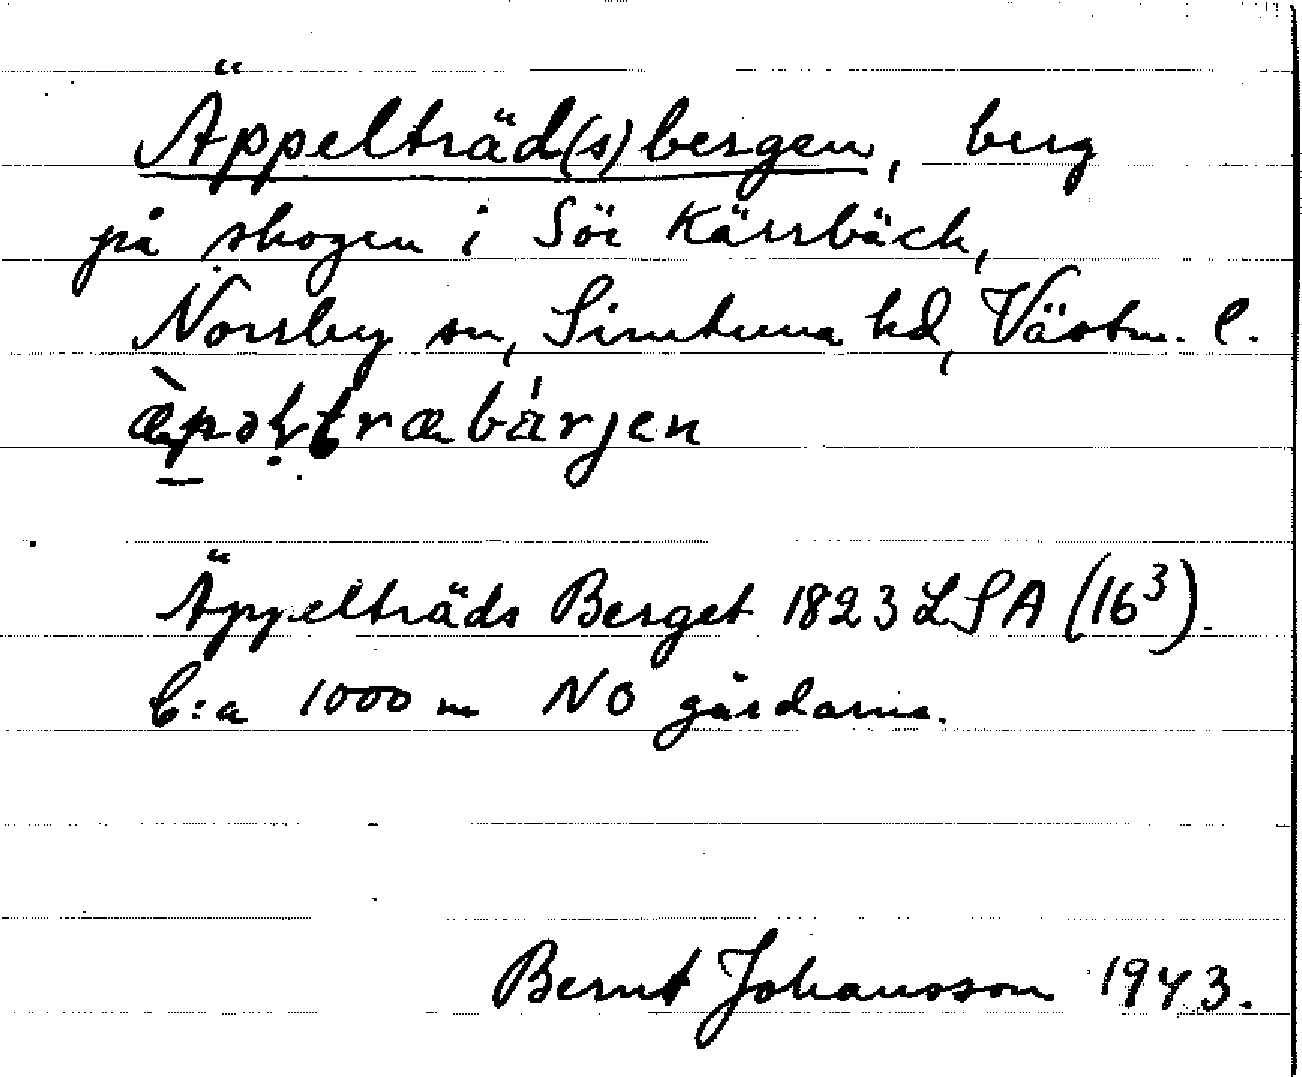 Äppelträd(s)bergen, berg
på skogen i Sör Kärrbäck,
Norrby sn, Simtuna hd, Västm. l.
æ̀pəḷtræbárjen
Äppelträds Berget 1823 LSA (16³).
C:a 1000 m NO gårdarna.
Bernt Johansson 1943.